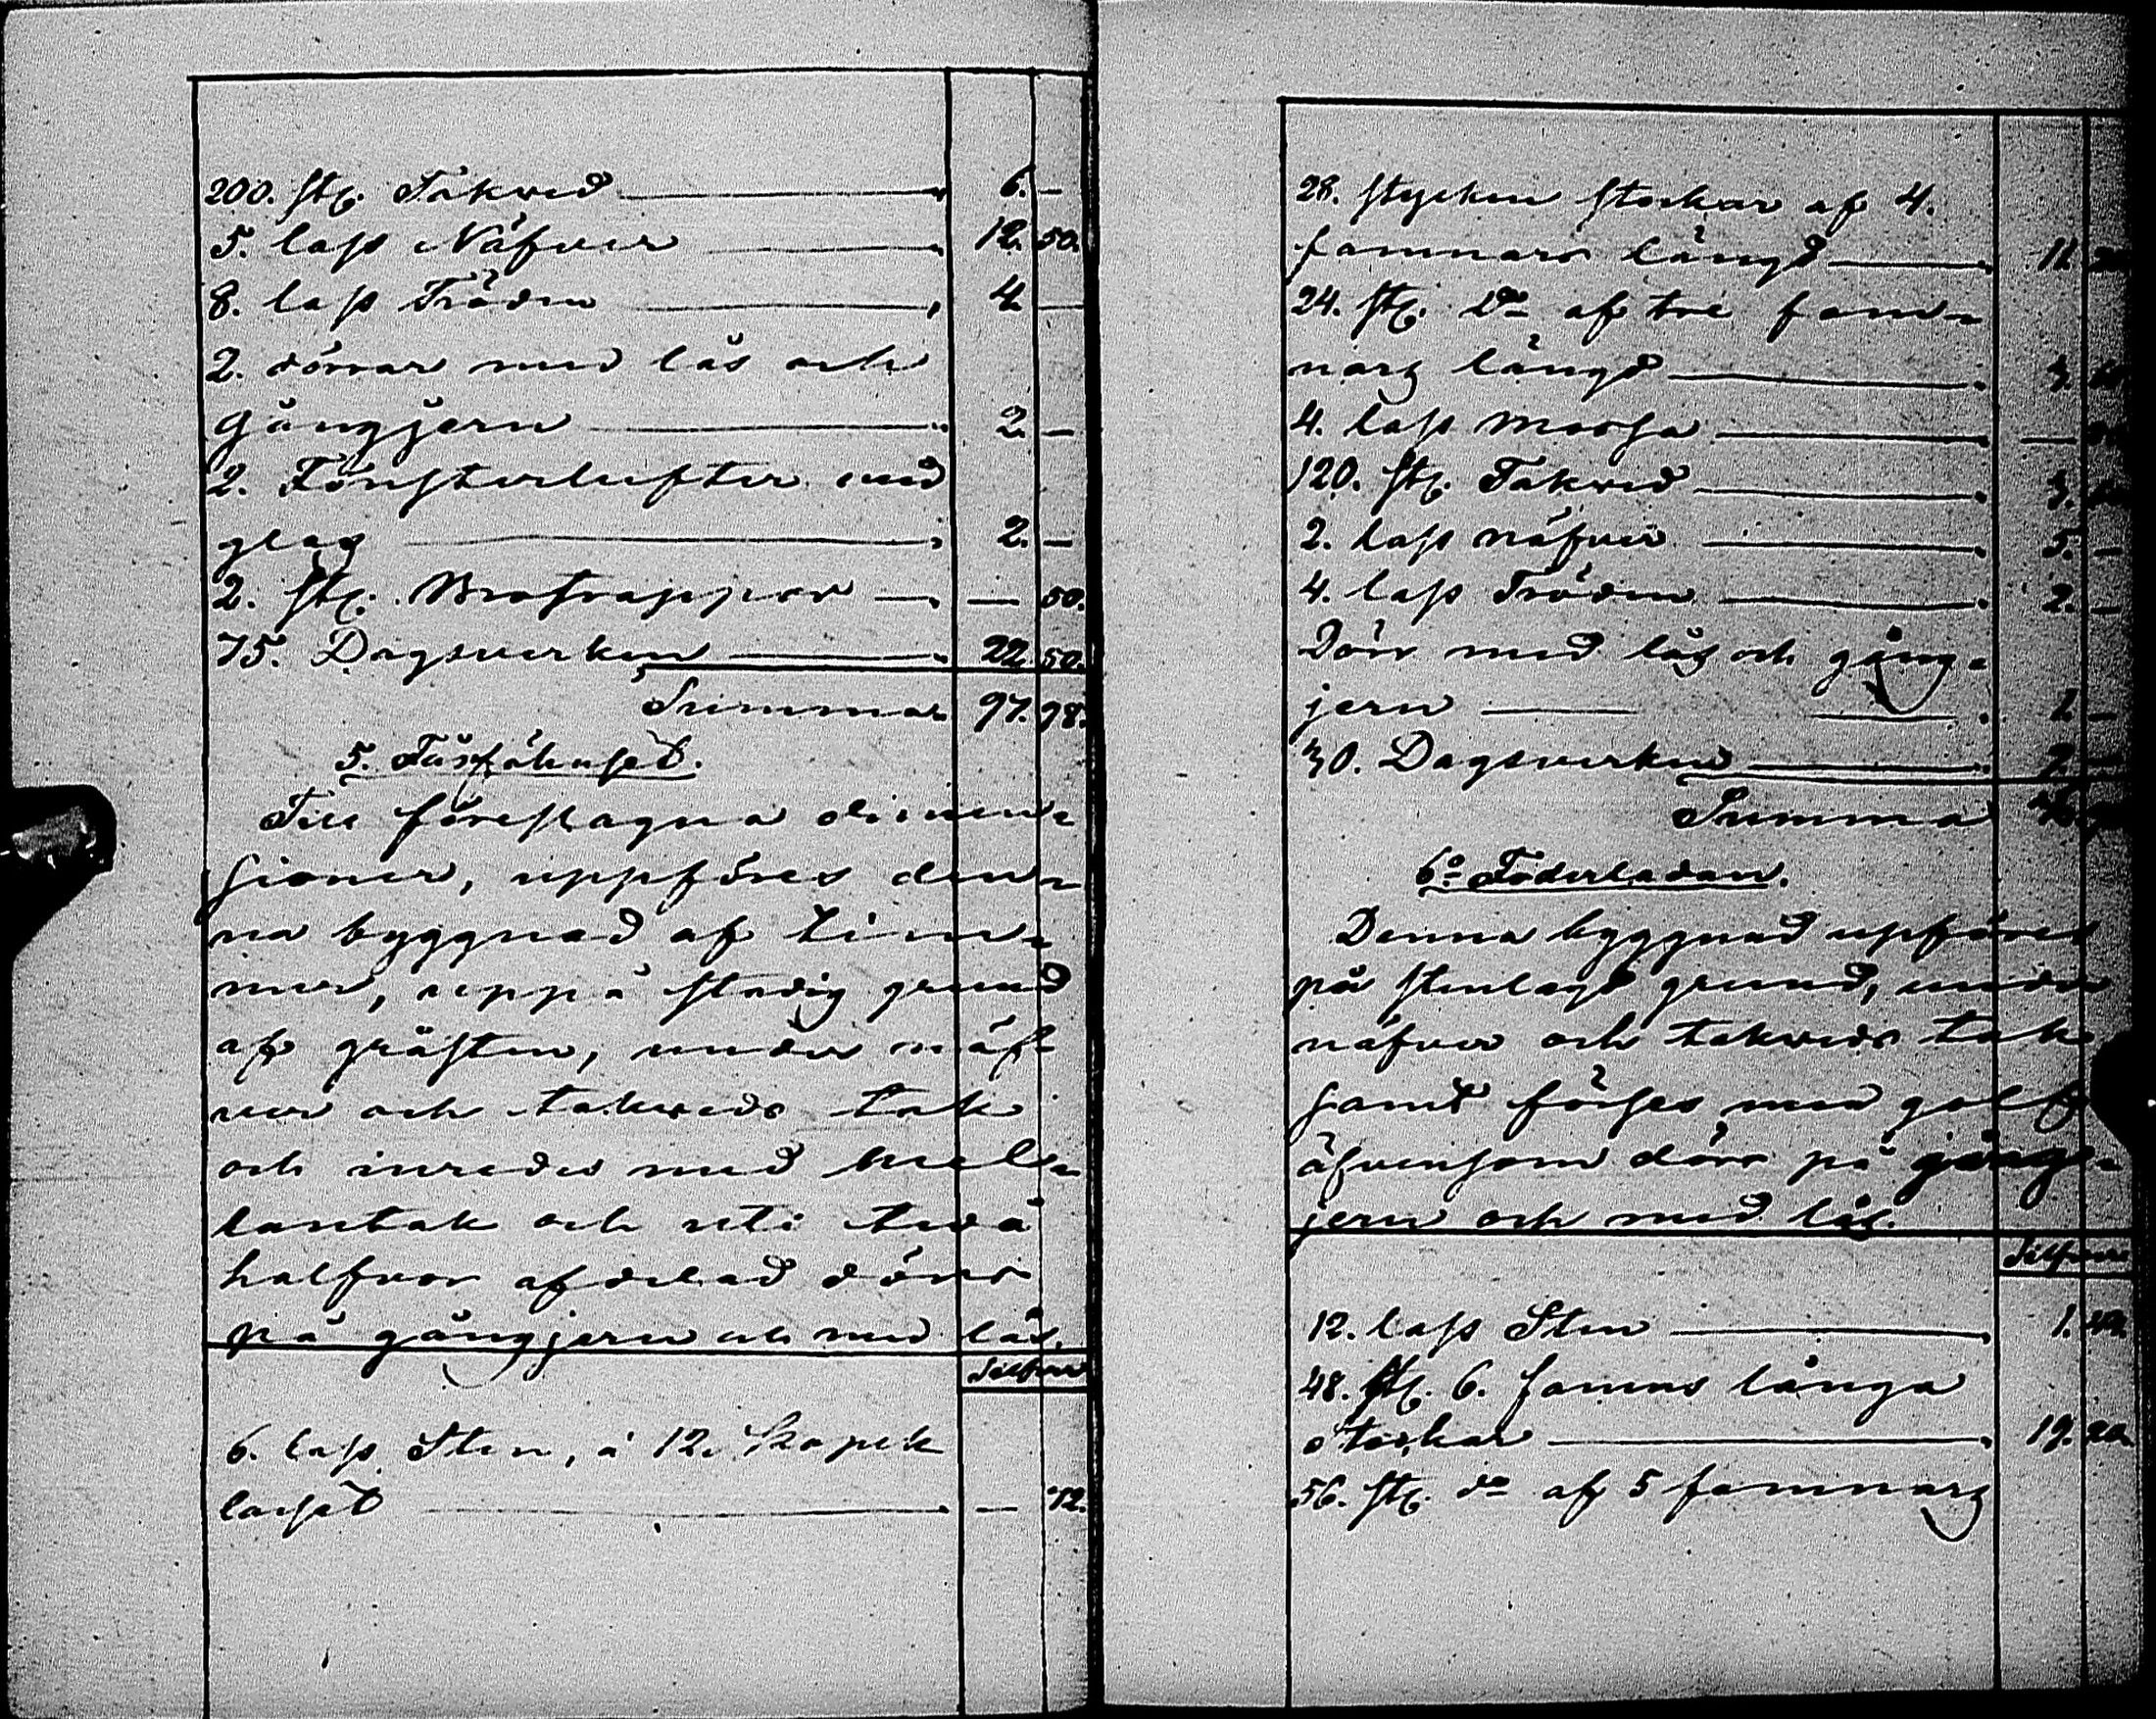 200. St. Takved 6. —
5. lass Näfver 12. 50.
8. lass Tröden 4. —
2. dörrar med lås och
gångjern 2. —
2. Fönsterlufter med
glas 2. —
2. st. — 50.
75. Dagsverken 22 50.
Summa 97. 98.
5. Fårfähuset.
Till föreslagna dimen-
sioner, uppföres den-
na byggnad af tim-
mer, uppå stadig grund
af gråsten, under näf-
ver och takveds tak
och inredes med mel-
lantak och uti två
halfvor afdelad dörr
på gångjern och med lås.
Silfver
6. lass Sten, à 12. Kopek
lasset — 72.
28. stycken stockar af 4.
famnars längd 11.
24. st. do af tre fam-
nars längd
4. lass Mossa —
120. st. Takved 3.
2. lass näfver 5. —
4. lass Tröden 2. —
Dörr med lås och gång-
jern —
30. Dagsverken
Summa
6o Foderladan.
Denna byggnad uppföres
på stenlagd grund, under
näfver och takveds tak
samt förses med golf
äfvensom dörr på gång-
jern och med lås.
Silfver
12. lass Sten 1.
48. st. 6. famns långa
stockar 19. 20.
56. st. do af 5 famnars